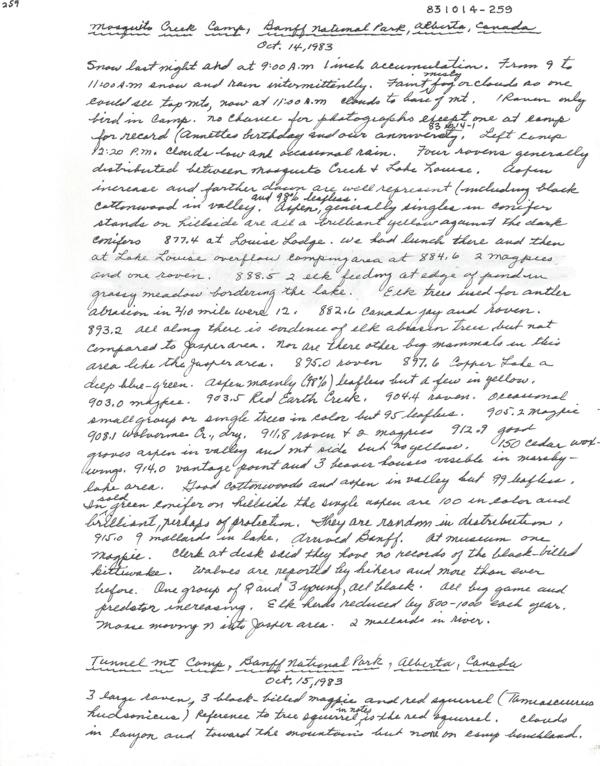 259
831014-259
Mosquito Creek Camp, Banff National Park, Alberta, Canada
Oct. 14, 1983
Snow last night and at 9:00 A.M 1 inch accumulation. From 9 to
11:00 A.M snow and rain intermittently. Faint misty fog or clouds so one
could see top mts, now at 11:00 A.M clouds to base of mt. 1 Raven only
bird in Camp. No chance for photographs except one at camp
for record (Annettes birthday and our anniversity. 83 10 14-1 Left camp
12:20 P.M. Clouds low and occasional rain. Four ravens generally
distributed between Mosquito Creek & Lake Louise. Aspen
increase and farther down are well represent (including black
cottonwood in valley. and 98% leafless. Aspen, generally singles in conifer
stands on hillside are all a brilliant yellow against the dark
conifers 877.4 at Louise Lodge. We had lunch there and then
at Lake Louise overflow camping area at 884.6 2 magpies
and one raven. 888.5 2 elk feeding at edge of pond in
grassy meadow bordering the lake. Elk trees used for antler
abrasion in 2/10 mile were 12. 882.6 Canada jay and raven.
893.2 all along there is evidence of elk abrasion trees but not
compared to Jasper area. Nor are there other big mammals in this
area like the Jasper area. 895.0 raven 897.6 Copper Lake a
deep blue-green. Aspen mainly (98%) leafless but a few in yellow.
903.0 magpie. 903.5 Red Earth Creek. 904.4 raven. Occasional
small group or single trees in color but 95 leafless. 905.2 Magpie
908.1 Wolverine Cr., dry. 911.8 raven & 2 magpies 912.9 good
groves aspen in valley and mt side but no yellow. 150 cedar wax-
wings. 914.0 vantage point and 3 beaver houses visible in marshy-
lake area. Good cottonwoods and aspen in valley but 99 leafless.
In solid green conifer on hillside the single aspen are 100 in color and
brilliant, perhaps of protection. They are random in distribution,
915.0 9 mallards in lake, arrived Banff. At museum one
magpie. Clerk at desk said they have no records of the black-billed
kittiwake. Wolves are reported by hikers and more than ever
before. One group of 2 and 3 young, all black. All big game and
predator increasing. Elk herds reduced by 800-1000 each year.
Moose moving N into Jasper area. 2 mallards in river.
Tunnel Mt Camp, Banff National Park, Alberta, Canada
Oct. 15, 1983
3 large raven, 3 black-billed magpie and red squirrel (Tamiasciurus
hudsonicus) Reference to tree squirrel in notes, is the red squirrel. Clouds
in canyon and toward the mountains but none on camp benchland.